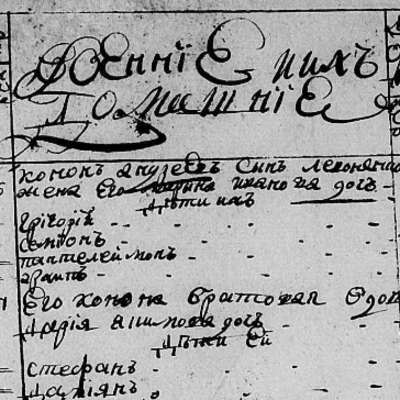 военнiе ихъ
домашнiе
кононъ андреевъ сынъ
жена его марина иванова дочь
дѣти ихъ
григорiй
семіонъ
пантелеймонъ
его конона братовая вдова
дарiя акимова дочь
дѣти ей
стефанъ
даміянъ